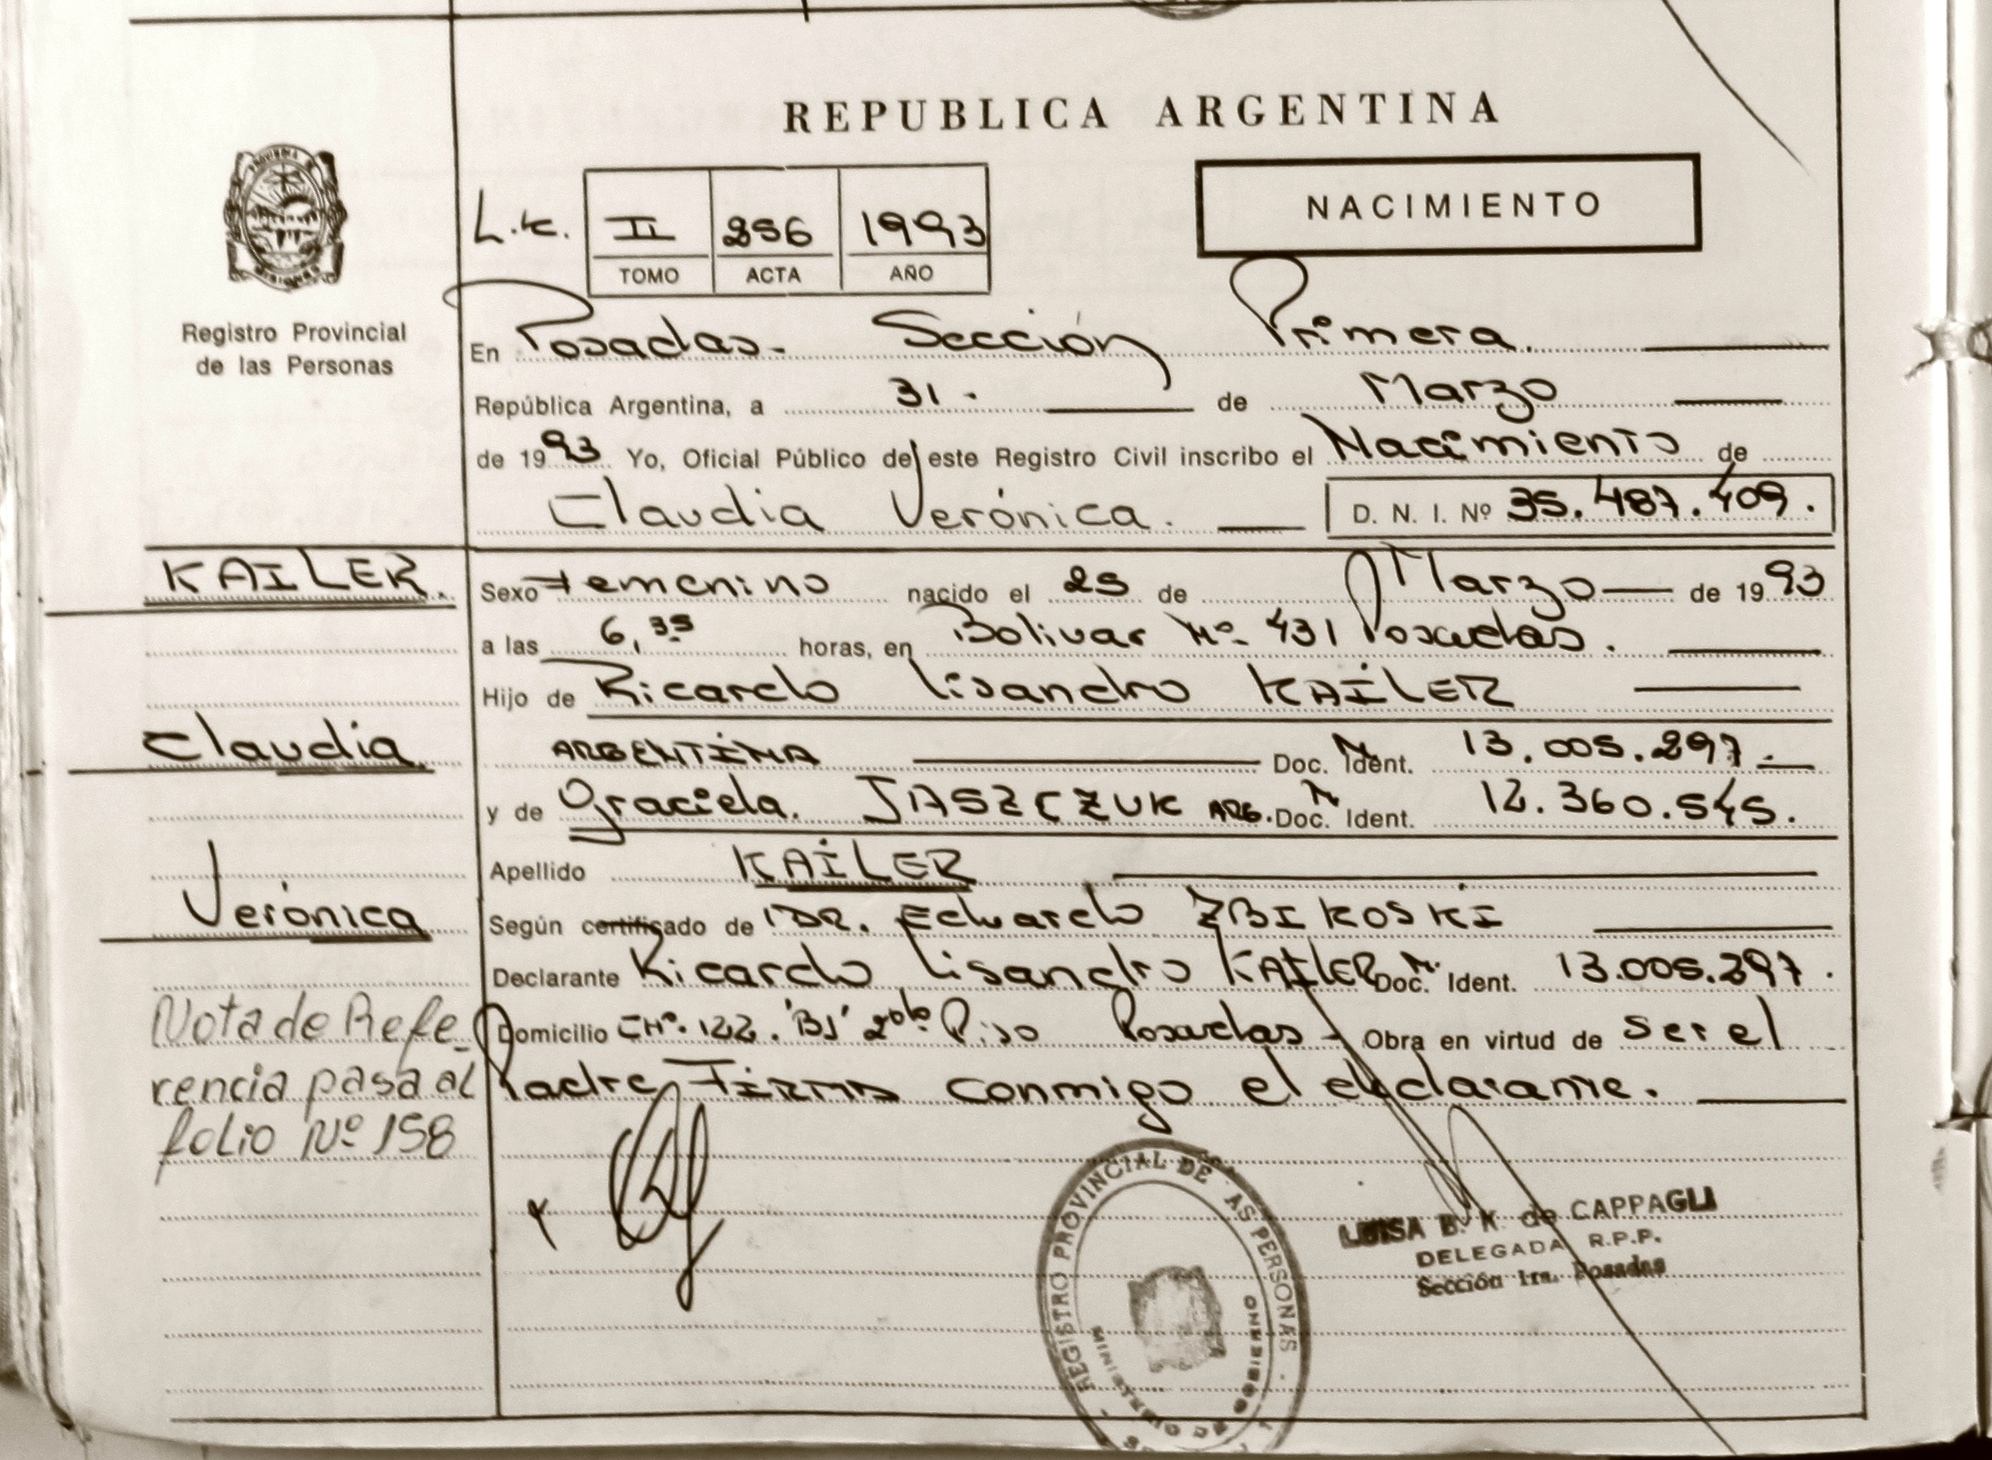 REPUBLICA ARGENTINA
NACIMIENTO
II 256 1993
TOMO ACTA AÑO
Registro Provincial
de las Personas
En Posadas- Sección Primera.
República Argentina, a 31. de Marzo
de 1993 Yo, Oficial Público de este Registro Civil inscribo el Nacimiento de
Claudia Verónica. D. N. I. Nº 35.487.409.
KAILER.
Sexo Femenino nacido el 25 de Marzo de 1993
a las 6,35 horas, en Bolivar Nº 431 Posadas.
Hijo de Ricardo Lisandro KAILER
Claudia
ARGENTINA Doc. N Ident. 13.005.297.
y de Graciela. JASZCZUK ARG. Doc. N Ident. 12.360.545.
Apellido KAILER
Verónica
Según certificado de DR. Eduardo ZBIKOSKI
Declarante Ricardo Lisandro KAILER Doc. N. Ident. 13.005.297.
Domicilio CHº. 122. 'BJ' 2do Piso Posadas- Obra en virtud de ser el
Padre FIRMA conmigo el declarante.
Nota de Refe-
rencia pasa al
folio Nº 158
LUISA B. K. de CAPPAGLI
DELEGADA R.P.P.
Sección 1ra. Posadas
REGISTRO PROVINCIAL DE AS PERSONAS